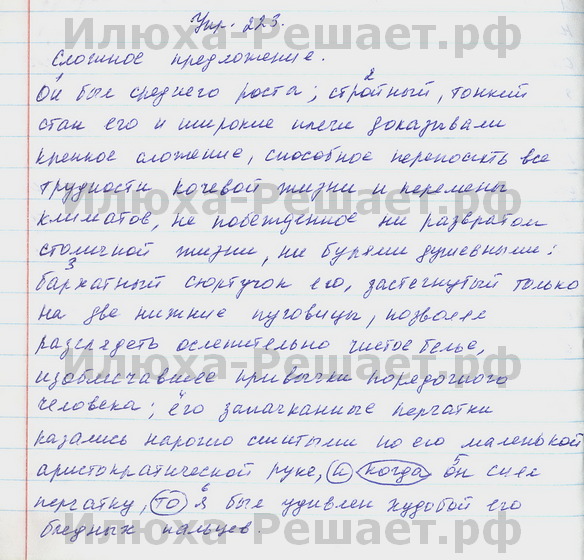 Упр. 223.
Сложное предложение.
1 2
Он был среднего роста; стройный, тонкий
стан его и широкие плечи доказывали
крепкое сложение, способное переносить все
трудности кочевой жизни и перемены
климатов, не побежденное ни развратом
столичной жизни, ни бурями душевными;
3
бархатный сюртучок его, застегнутый только
на две нижние пуговицы, позволял
разглядеть ослепительно чистое белье,
изобличавшее привычки порядочного
человека; его запачканные перчатки
казались нарочно сшитыми по его маленькой
5
аристократической руке, и когда он снял
6
перчатку, то я был удивлен худобой его
бледных пальцев.
Илюха-Решает.рф
Илюха-Решает.рф
Илюха-Решает.рф
Илюха-Решает.рф
Илюха-Решает.рф
Илюха-Решает.рф
Илюха-Решает.рф